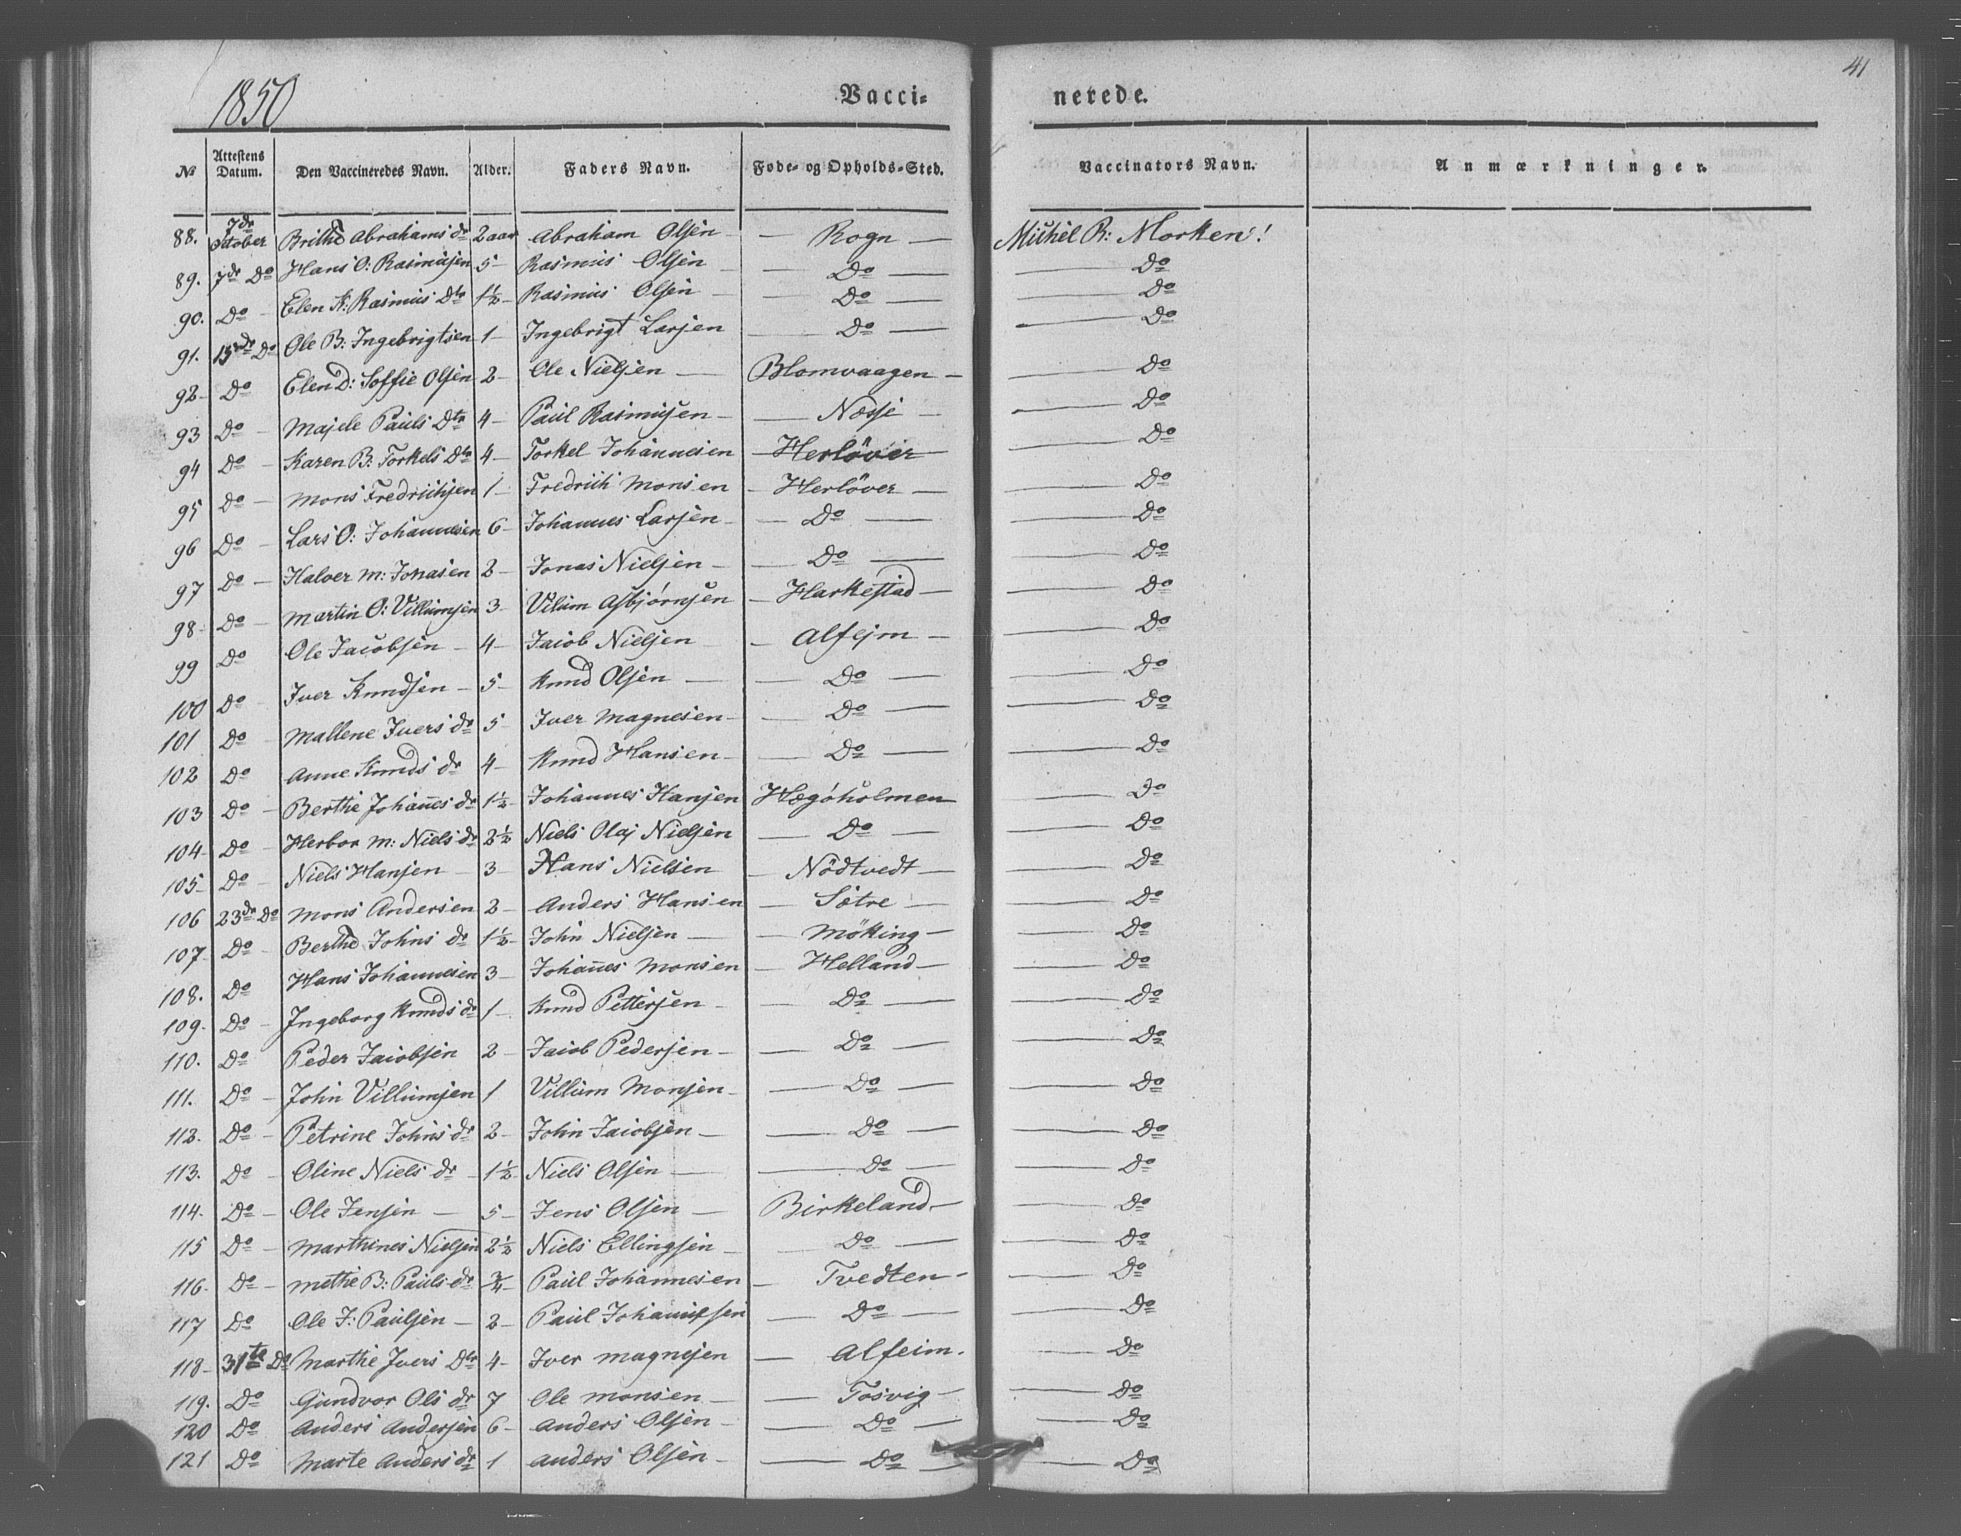 1850 Vacci= nerede. 41
№ Attestens Datum. Den Vaccineredes Navn. Alder. Faders Navn. Føde- og Opholds-Sted. Vaccinators Navn. Anmærkninger.
88. 7de October Brithe Abrahams dr 2 aar Abraham Olsen — Rogn — Michel R: Morken!
89. 7de Do Hans O: Rasmusen 5 — Rasmus Olsen — Do — Do
90. Do — Elen K: Rasmus Dtr 1½ — Rasmus Olsen — Do — Do
91. 15de Do Ole B: Ingebrigtsen 1 — Ingebrigt Larsen — Do — Do
92 — Do Elen D: Soffie Olsen 2 — Ole Nielsen — Blomvaagen — Do
93 Do — Majele Pauls Dtr 4 — Paul Rasmusen — Næsse — Do
94 Do — Karen B: Torkels Dtr 4 — Torkel Johannesen — Herlöver — Do
95 Do — Mons Fredrichsen 1 — Fredrich Monsen — Herlöver — Do
96 Do — Lars O: Johannesen 6 — Johannes Larsen — Do — Do
97 Do — Halver M: Jonasen 2 — Jonas Nielsen — Do — Do
98 — Do — Martin O: Villumsen 3 — Vilum Asbjørnsen — Harkestad — Do
99 Do Ole Jacobsen — 4 — Jacob Nielsen — Alfejm — Do
100 Do — Iver Knudsen — 5 — Knud Olsen — Do — Do
101 Do — Mallene Ivers dr 5 — Iver Magnesen — Do — Do
102 Do Anne Knuds dr 4 — Knud Hansen — Do — Do
103 Do — Berthe Johañes dr 1½ — Johannes Hansen Hægöholmen — Do
104 — Do — Herbor M: Niels dr 2½ Niels Olaj Nielsen — Do — Do
105 — Do — Niels Hansen — 3 — Hans Nielsen — Nödtvedt — Do
106 23de Do Mons Andersen 2 — Anders Hansen — Sætre — Do
107 — Do — Berthe Johns dr 1½ — John Nielsen — Möking — Do
108. Do Hans Johannesen 3 — Johañes Monsen — Helland — Do
109. Do — Ingeborg Knuds dr 1 — Knud Pettersen — Do — Do
110. Do — Peder Jacobsen 2 — Jacob Pedersen — Do — Do
111. Do — John Villumsen 1 Villum Monsen — Do — Do
112. Do — Petrine Johns dr 2 — John Jacobsen — Do — Do
113. Do — Oline Niels dr — 1½ Niels Olsen — Do — Do
114. Do — Ole Jensen — 5 — Jens Olsen — Birkeland — Do
115 Do — Marthines Nielsen 2½ Niels Ellingsen — Do — Do
116. Do — Methe B: Pauls dr ¾ Paul Johannesen — Tvedten — Do
117 Do Ole J: Paulsen — 2 — Paul Johannesen — Do — Do
118 — 31te Do Marthe Ivers Dtr 4 — Iver Magnesen — Alfeim. — Do
119. Do — Gundvor Ols dr 7 Ole Monsen — Tosvig — Do
120 Do — Anders Andersen 6 — Anders Olsen — Do — Do
121 Do — Marte Anders dr 1 Anders Olsen — Do — Do